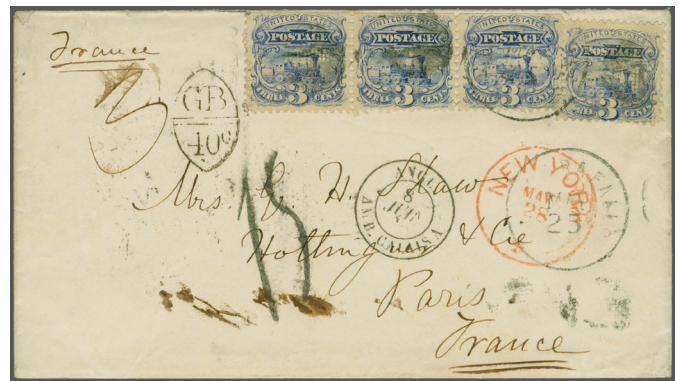 France
UNITED STATES
POSTAGE
THREE 3 CENTS
UNITED STATES
POSTAGE
THREE 3 CENTS
UNITED STATES
POSTAGE
THREE 3 CENTS
UNITED STATES
POSTAGE
THREE 3 CENTS
GB
40c
Mrs. G. H. Shaw
& Cie
Paris
France
ANGL.
8
AMB. CALAIS A
NEW YORK
MAY
28
23